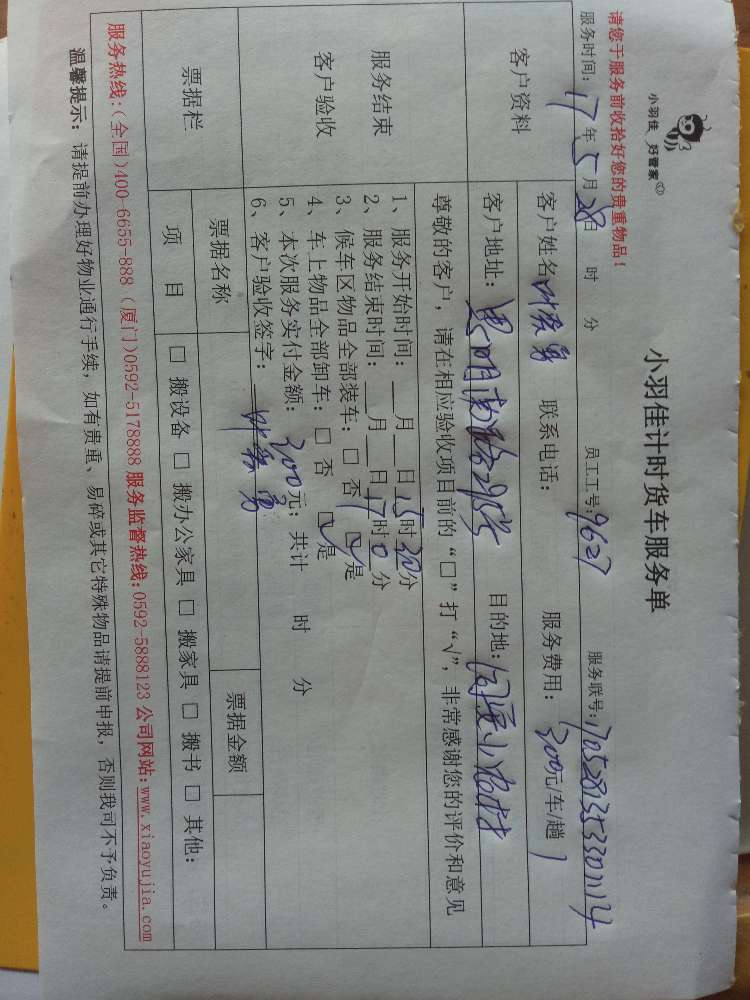 小羽佳 好管家
请您于服务前收拾好您的贵重物品！
小羽佳计时货车服务单
服务时间：17年5月28日 时 分 员工工号：9627 服务联号：170528135330111124
客户资料 客户姓名 联系电话： 服务费用：300元/车/趟
客户地址：思明南路295号 目的地：
服务结束
客户验收
尊敬的客户，请在相应验收项目前的“□”打“√”，非常感谢您的评价和意见
1、服务开始时间：__月__日15时30分
2、服务结束时间：__月__日17时0分
3、候车区物品全部装车：□ 否 ☑是
4、车上物品全部卸车：□ 否 ☑是
5、本次服务实付金额：300元；共计 时 分
6、客户验收签字：
票据栏 票据名称 票据金额
项 目 □ 搬设备 □ 搬办公家具 □ 搬家具 □ 搬书 □ 其他：
服务热线：（全国）400-6655-888（厦门）0592-5178888 服务监督热线：0592-5888123 公司网站：www.xiaoyujia.com
温馨提示：请提前办理好物业通行手续，如有贵重、易碎或其它特殊物品请提前申报，否则我司不予负责。